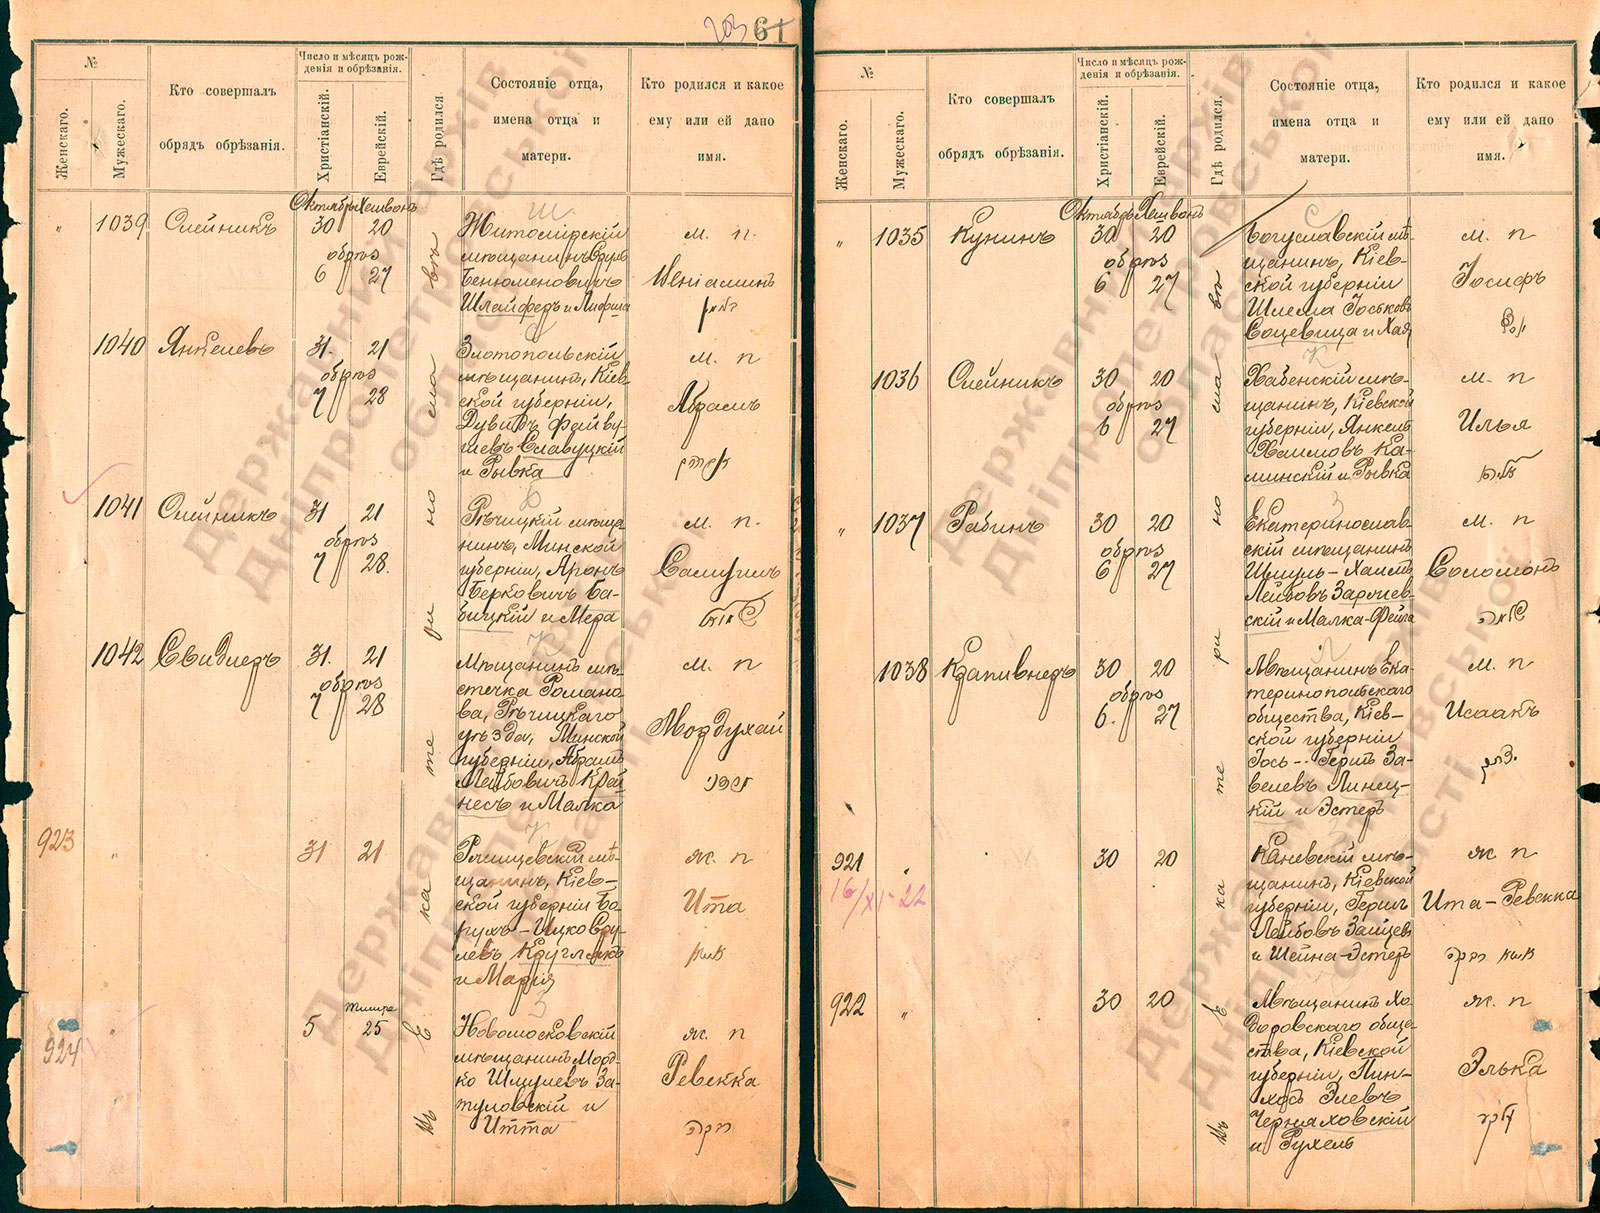 203 61
№
Женскаго.
Мужескаго.
Кто совершалъ
обрядъ обрѣзанія.
Число и мѣсяцъ рож-
денія и обрѣзанія.
Христіанскій.
Еврейскій.
Гдѣ родился.
Состояніе отца,
имена отца и
матери.
Кто родился и какое
ему или ей дано
имя.
Октябрь Хешвонъ
1039 Олейникъ 30 20
обрѣз
6 27
Житомірскій
мѣщанинъ Сруль
Бенюменовичъ
Шлайферъ и
м. п.
Веніаминъ
1040 Янкелевъ 31. 21
обрѣз
7 28
Златопольскій
мѣщанинъ, Кіев-
ской губерніи,
Дувидъ Файву-
шевъ Славуцкій
и Рывка
м. п
Абрамъ
1041 Олейникъ 31 21
обрѣз
7 28.
Рѣчицкій мѣща-
нинъ, Минской
губерніи, Аронъ
Берковичъ Ба-
бицкій и Мера
м. п.
Самуилъ
1042 Свидлеръ 31. 21
обрѣз
7 28
Мѣщанинъ мѣ-
стечка Романо-
ва, Рѣчицкаго
уѣзда, Минской
губерніи, Абрамъ
Лейбовичъ Край-
несъ и Малка
м. п
Мордухай
מרדכי
923 " 31 21
мѣ-
щанинъ, Кіев-
ской губерніи Бо-
рухъ-Ицко Сру-
левъ Круглякъ
и Марія
ж. п
Ита
איטא
924 " 5 25
Новомосковскій
мѣщанинъ Морд-
ко Шмулевъ За-
туловскій и
Итта
ж. п
Ревекка
רבקה
Въ Екатеринославѣ
№
Женскаго.
Мужескаго.
Кто совершалъ
обрядъ обрѣзанія.
Число и мѣсяцъ рож-
денія и обрѣзанія.
Христіанскій.
Еврейскій.
Гдѣ родился.
Состояніе отца,
имена отца и
матери.
Кто родился и какое
ему или ей дано
имя.
Октябрь Хешвонъ
" 1035 Кунинъ 30 20
обрѣз
6 27
Богуславскій мѣ-
щанинъ, Кіев-
ской губерніи
Шлема Іоськовъ
Соцевица и Хая
м. п
Іосифъ
יוסף
1036 Олейникъ 30 20
обрѣз
6 27
Хабенскій мѣ-
щанинъ, Кіевской
губерніи, Янкель
Хаимовъ Ка-
минскій и Рывка
м. п
Илья
" 1037 Рабинъ 30 20
обрѣз
6 27
Екатеринослав-
скій мѣщанинъ
Шмуль-Хаимъ
Лейбовъ
скій и Малка-Фейга
м. п
Соломонъ
שלמה
1038 Крапивнеръ 30 20
обрѣз
6. 27
Мѣщанинъ Ека-
теринопольскаго
общества, Кіев-
ской губерніи
Іось-Гершъ За-
велевъ Линец-
кій и Эстеръ
м. п
Исаакъ
יצחק
921 " 30 20
16/XI-22
Каневскій мѣ-
щанинъ, Кіевской
губерніи, Гершъ
Лейбовъ Зайцевъ
и Шейна-Эстеръ
ж. п
Ита-Ревекка
איטא רבקה
922 " 30 20
Мѣщанинъ Хо-
доровскаго обще-
ства, Кіевской
губерніи, Пин-
хосъ Элевъ
Черняховскій
и Рухель
ж. п
Элька
עלקע
Въ Екатеринославѣ
Державний архів
Дніпропетровської
області